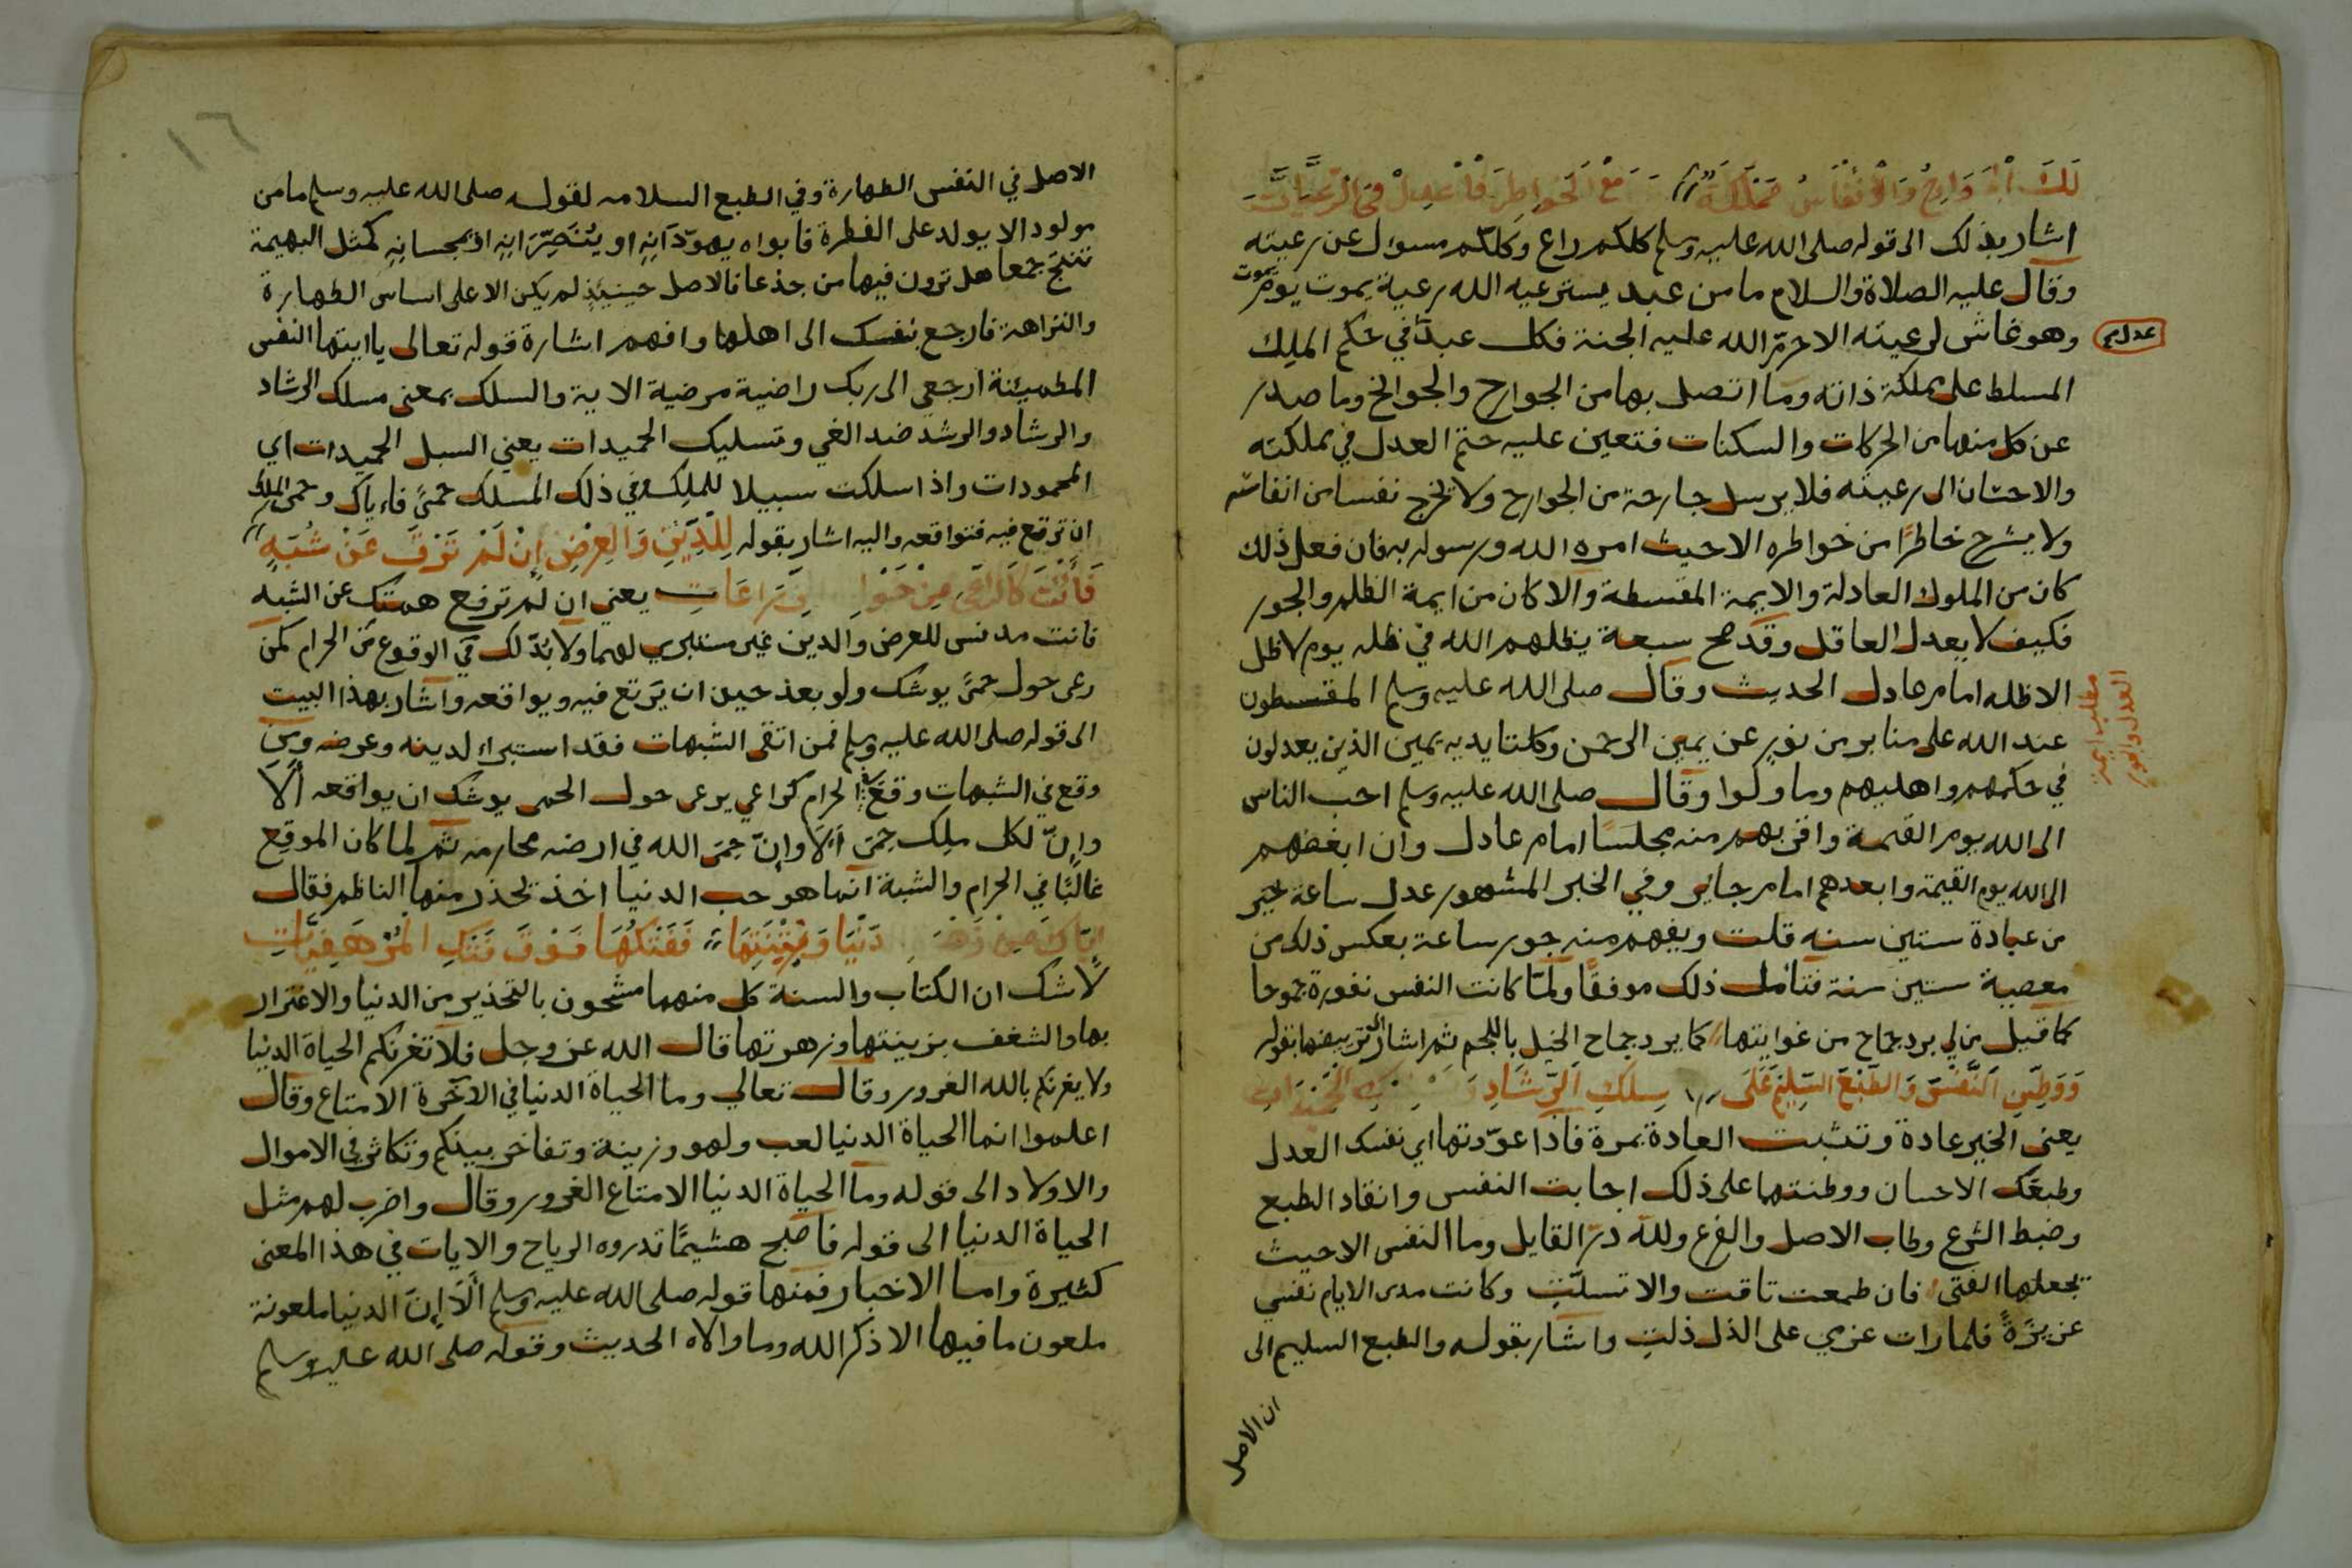 لَكَ الْجَوَارِحُ وَالْأَنْفَاسُ مَمْلَكَةٌ مَعَ الْخَوَاطِرِ فَاعْدِلْ فِي الرَّعِيَّاتِ
اشار بذلك الى قوله صلى الله عليه وسلم كلكم راع وكلكم مسول عن رعيته
وقال عليه الصلاة والسلام ما من عبد يسترعيه الله رعية يموت يوم يموت
وهو غاش لرعيته الا حرّم الله عليه الجنة فكل عبد في حكم الملِك
عدلهم
المسلط على مملكة ذاته وما اتصل بها من الجوارح والجوانح وما صدر
عن كل منها من الحركات والسكنات فتعين عليه حتم العدل في مملكته
والاحسان الى رعيته فلا يرسل جارحة من الجوارح ولا يخرج نفسا من انفاسه
ولا يسرح خاطرًا من خواطره الا حيث امره الله ورسوله به فان فعل ذلك
كان من الملوك العادلة والايمة المقسطة والا كان من ايمة الظلم والجور
فكيف لا يعدل العاقل وقد صح سبعة يظلهم الله في ظله يوم لا ظل
الا ظله امام عادل الحديث وقال صلى الله عليه وسلم المقسطون
مطلب
العدل والجور
عند الله على منابر من نور عن يمين الرحمن وكلتا يديه يمين الذين يعدلون
في حكمهم واهليهم وما ولوا وقال صلى الله عليه وسلم احب الناس
الى الله يوم القيمة واقربهم منه مجلسًا امام عادل وان ابغضهم
الى الله يوم القيمة وابعدهم امام جاير وفي الخبر المشهور عدل ساعة خير
من عبادة ستين سنه قلت ويفهم منه جور ساعة بعكس ذلك من
معصية ستين سنة فتامل ذلك موفقًا ولمّا كانت النفس نفورة جموحا
كما قيل من لي برد جماح من غوايتها كما يرد جماح الخيل باللجم ثم اشار الى ترييضها بقوله
وَوَطِّنِ النَّفْسَ وَالطَّبْعَ السَّلِيمَ عَلَى سِلْكِ الرَّشَادِ الْحَمِيدَاتِ
يعني الخير عادة وتثبت العادة بمرة فاذا عوّدتها اي نفسك العدل
وطبعك الاحسان ووطنتها على ذلك اجابت النفس وانقاد الطبع
وضبط الشرع وطاب الاصل والفرع ولله درّ القايل وما النفس الا حيث
يجعلها الفتى فان طمعت تاقت والا تسلّت وكانت مدى الايام نفسي
عزيزةً فلما رات عزمي على الذل ذلت واشار بقوله والطبع السليم الى
ان الاصل
١٦
الاصل في النفس الطهارة وفي الطبع السلامه لقوله صلى الله عليه وسلم ما من
مولود الا يولد على الفطرة فابواه يهوّدَانِهِ او يُنَصِّرَانِهِ او يمجسانِهِ كمثل البهيمة
تنتج جمعا هل ترون فيها من جدعا فالاصل حينيذٍ لم يكن الا على اساس الطهارة
والنزاهة فارجع بنفسك الى اهلها وافهم اشارة قوله تعالى يا ايتها النفس
المطمينة ارجعي الى ربك راضية مرضية الاية والسلك بمعنى مسلك الرشاد
والرشاد والرشد ضد الغي وتسليك الحميدات يعني السبل الحميدات اي
المحمودات واذا سلكت سبيلا للملك في ذلك المسلك حمىً فاءياك وحمى الملك
ان ترتع فيه فتواقعه واليه اشار بقوله لِلدِّينِ وَالْعِرْضِ اِنْ لَمْ تَرْقَ عَنْ شُبَهٍ
فَأَنْتَ كَالرَّاعِي مِنْ حَوْلِ مَرَاعَاتِ يعني ان لم ترفع همتك عن الشبه
فانت مدنس للعرض والدين غير مستبري لهما ولا بدّ لك من الوقوع في الحرام كمن
رعى حول حمىً يوشك ولو بعد حين ان يَرتع فيه ويواقعه واشار بهذا البيت
الى قوله صلى الله عليه وسلم فمن اتقى الشبهات فقد استبراء لدينه وعرضه ومن
وقع في الشبهات وقع في الحرام كراعي يرعى حول الحمى يوشك ان يواقعه ألا
وإنّ لكل ملِك حِمَى أَلَا وإنّ حِمَى الله في ارضه محارمه ثم لما كان الموقِع
غالبًا في الحرام والشبة انما هو حب الدنيا اخذ يحذر منها الناظم فقال
اِيَّاكَ مِنْ زَهْرَةِ الدُّنْيَا وَزِينَتِهَا فَفَتْكُهَا فَوْقَ فَتْكِ الْمُرْهَفِيَّاتِ
لاشك ان الكتاب والسنة كل منهما مشحون بالتحذير من الدنيا والاغترار
بها والشغف بزينتها وزهرتها قال الله عز وجل فلا تغرنكم الحياة الدنيا
ولا يغرنكم بالله الغرور وقال تعالى وما الحياة الدنيا في الآخرة الا متاع وقال
اعلموا انما الحياة الدنيا لعب ولهو وزينة وتفاخر بينكم وتكاثر في الاموال
والاولاد الى قوله وما الحياة الدنيا الا متاع الغرور وقال واضرب لهم مثل
الحياة الدنيا الى قوله فاصبح هشيمًا تدروه الرياح والايات في هذا المعنى
كثيرة واما الاخبار فمنها قوله صلى الله عليه وسلم أَلَا إنّ الدنيا ملعونة
ملعون ما فيها الا ذكر الله وما والاه الحديث وقوله صلى الله عليه وسلم